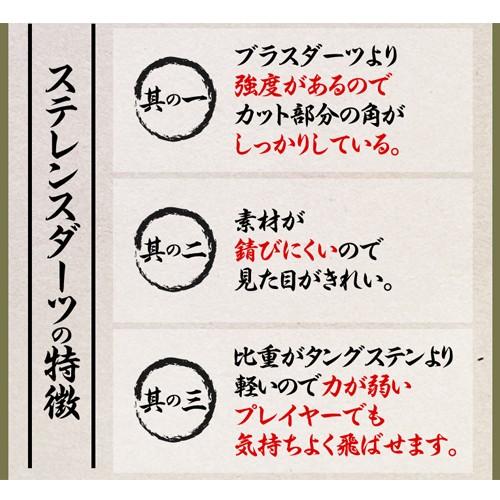 ステレンスダーツの特徴
其の一
ブラスダーツより
強度があるので
カット部分の角が
しっかりしている。
其の二
素材が
錆びにくいので
見た目がきれい。
其の三
比重がタングステンより
軽いので力が弱い
プレイヤーでも
気持ちよく飛ばせます。